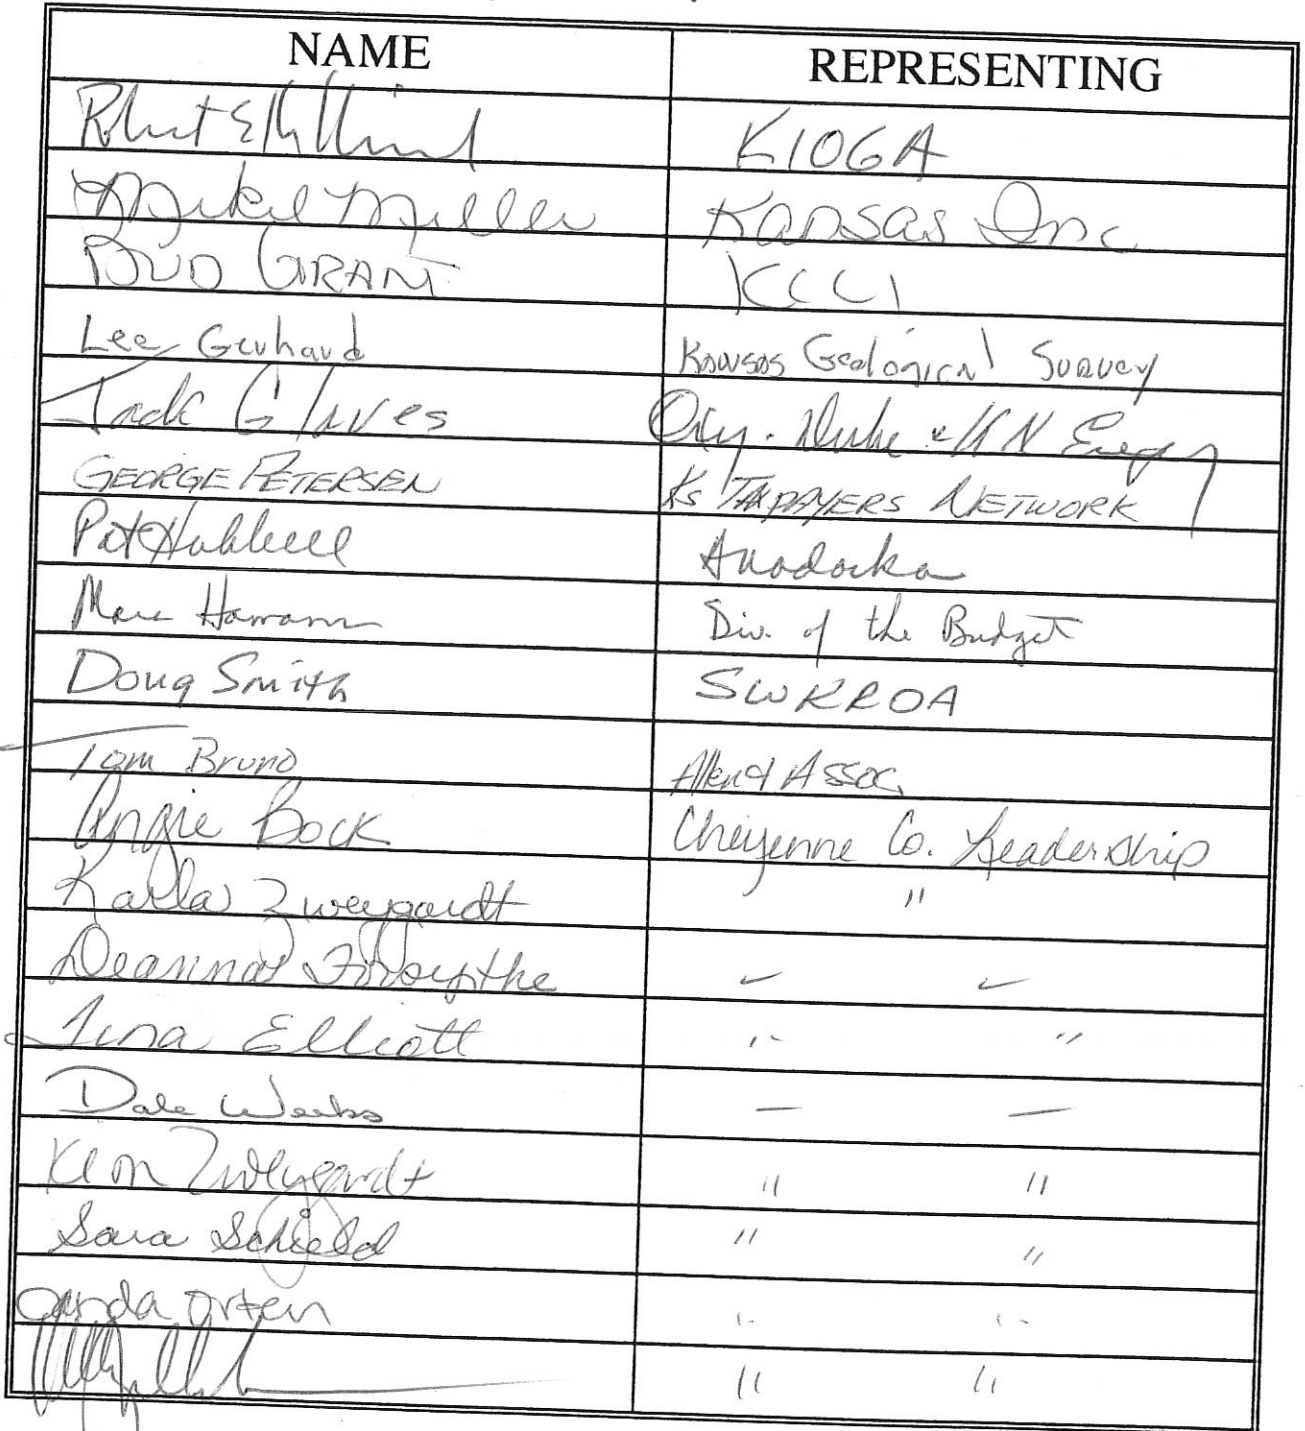 NAME REPRESENTING
Robert E K KIOGA
Mikel Miller Kansas Inc
BUD GRANT KCCI
Lee Gerhard Kansas Geological Survey
Jack Glaves Oxy. Duke & KN Energy
GEORGE PETERSEN Ks TAXPAYERS NETWORK
Pat Hubbell Anadarko
Marc Hamann Div. of the Budget
Doug Smith SWKROA
Tom Bruno Allen & Assoc.
Angie Bock Cheyenne Co. Leadership
Karla Zweygardt "
Deanna Forsythe " "
Tina Elliott " "
Dale Weeks — —
Kim Zweygardt " "
Sara Schield " "
Orten " "
" "